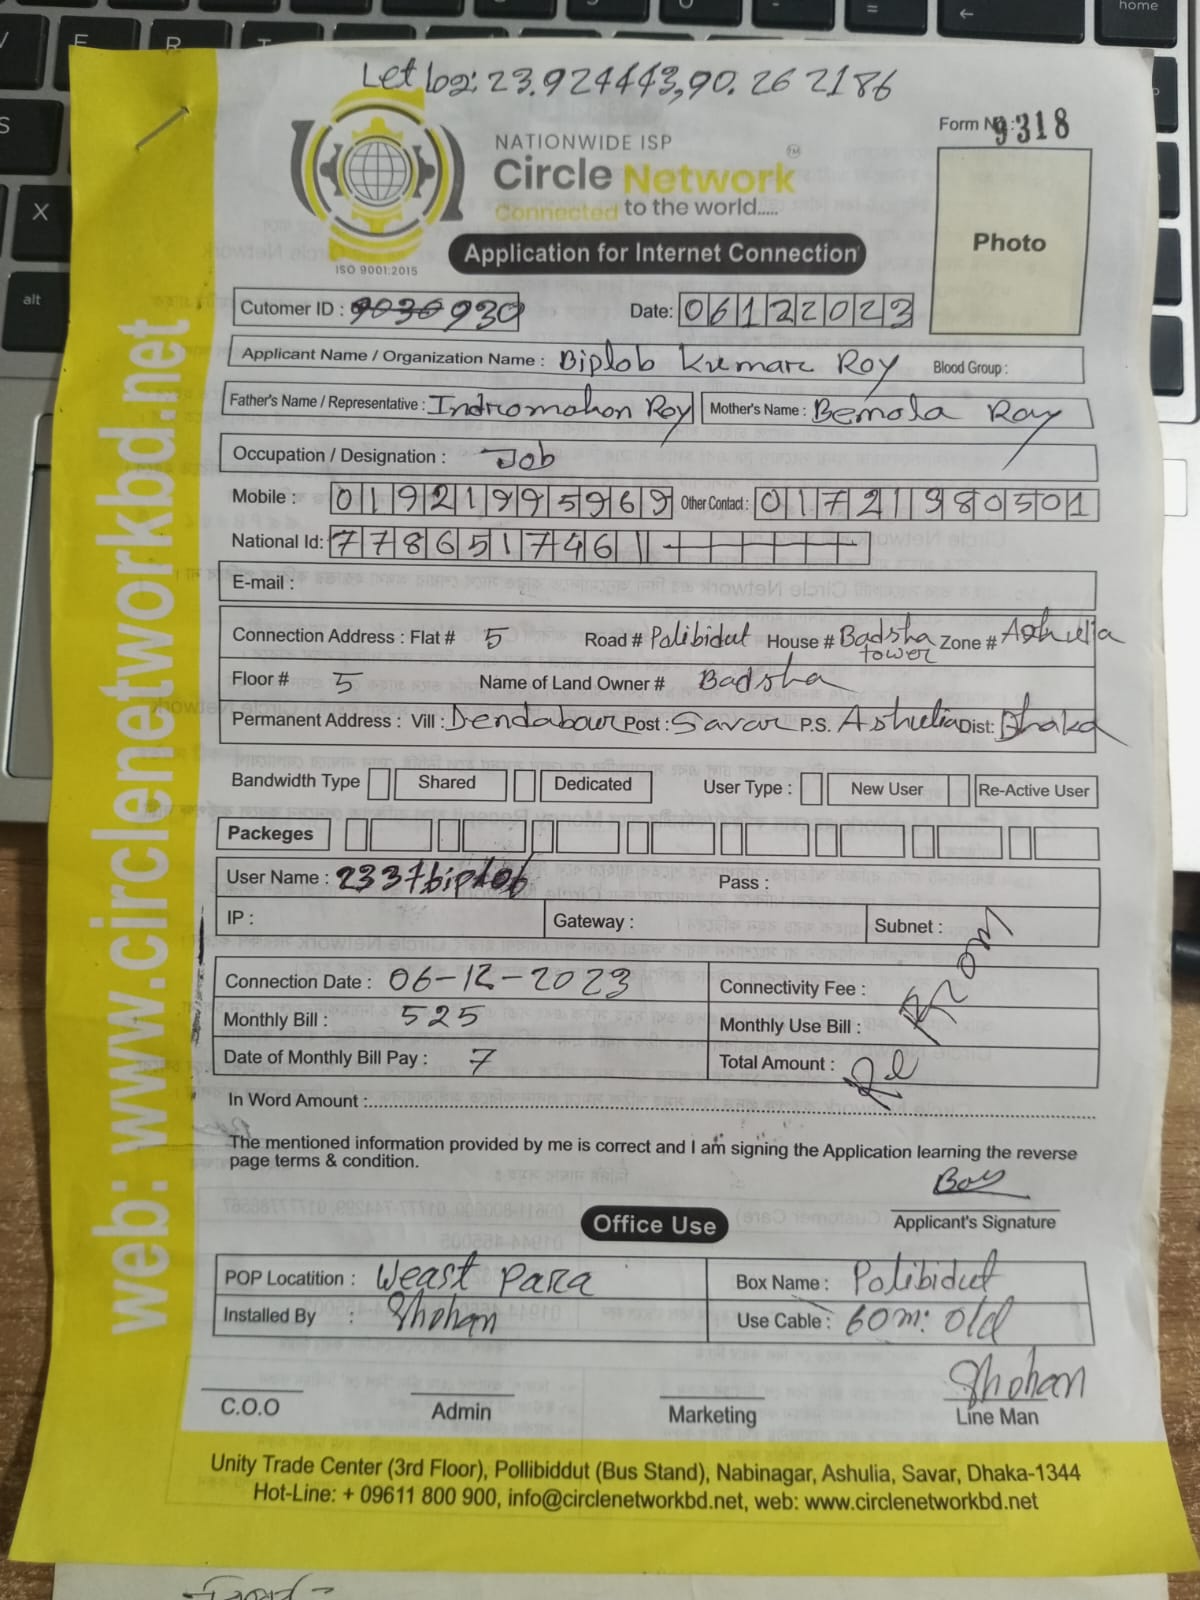 Let log: 23.924443,90.262186
Form No: 9318
NATIONWIDE ISP
Circle Network TM
Connected to the world.....
ISO 9001:2015
Application for Internet Connection
Photo
Cutomer ID : 9030 930 Date: 06122023
Applicant Name / Organization Name : Biplob Kumar Roy Blood Group :
Father's Name / Representative : Indromohon Roy Mother's Name : Bemola Roy
Occupation / Designation : Job
Mobile : 01921995969 Other Contact : 01721980501
National Id: 7786517461
E-mail :
Connection Address : Flat # 5 Road # Polibidut House # Badsha tower Zone # Ashulia
Floor # 5 Name of Land Owner # Badsha
Permanent Address : Vill : Dendabour Post : Savar P.S. Ashulia Dist: Dhaka
Bandwidth Type Shared Dedicated User Type : New User Re-Active User
Packeges
User Name : 2337biplob Pass :
IP : Gateway : Subnet :
Connection Date : 06-12-2023 Connectivity Fee :
Monthly Bill : 525 Monthly Use Bill :
Date of Monthly Bill Pay : 7 Total Amount :
In Word Amount :
The mentioned information provided by me is correct and I am signing the Application learning the reverse
page terms & condition.
Applicant's Signature
Office Use
POP Locatition : Weast Para Box Name : Polibidut
Installed By : Shohan Use Cable : 60m: old
Shohan
C.O.O Admin Marketing Line Man
Unity Trade Center (3rd Floor), Pollibiddut (Bus Stand), Nabinagar, Ashulia, Savar, Dhaka-1344
Hot-Line: + 09611 800 900, info@circlenetworkbd.net, web: www.circlenetworkbd.net
web: www.circlenetworkbd.net